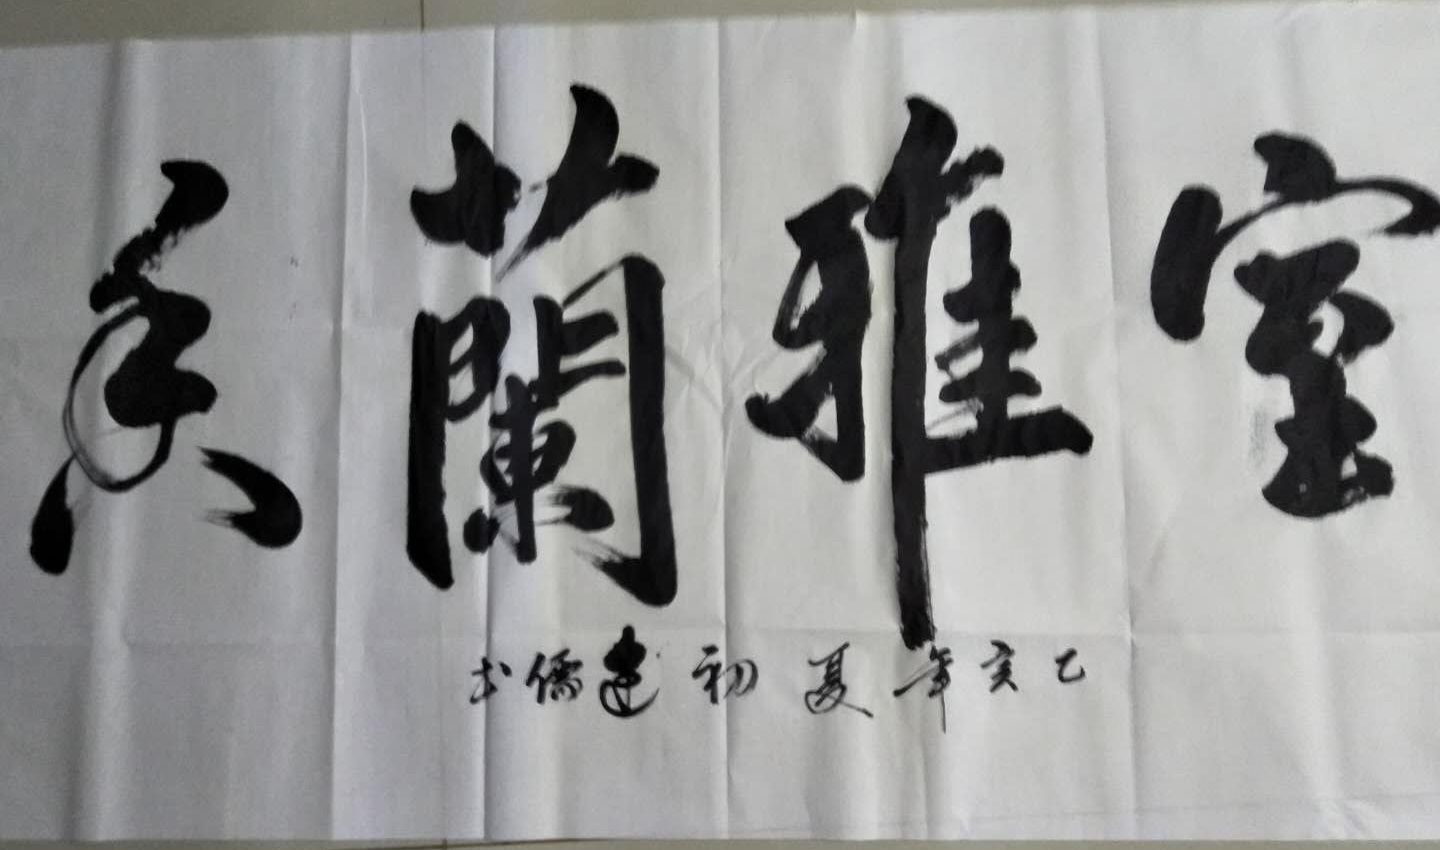 室雅蘭香
己亥年夏初建儒书